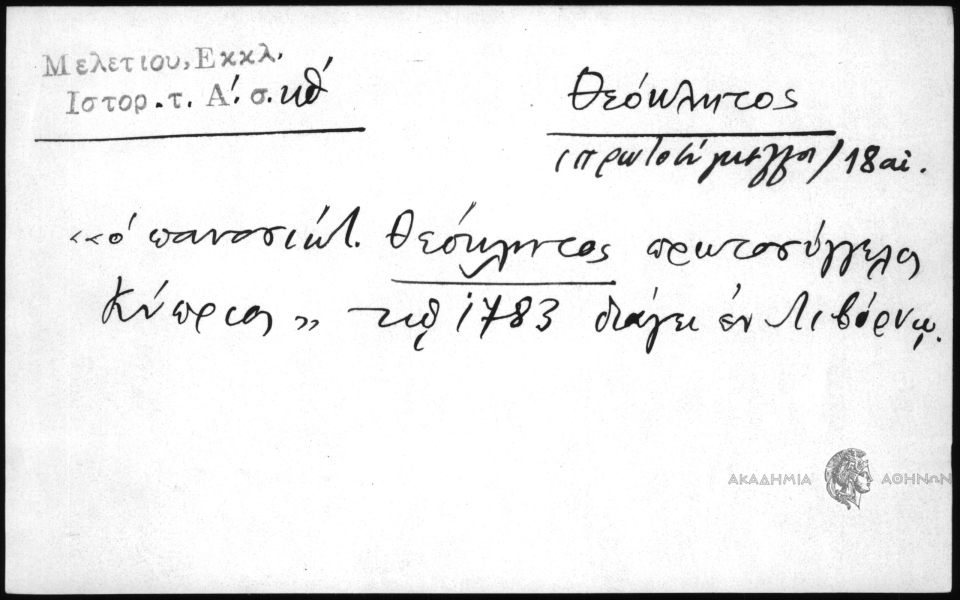 Μελετιου, Εκκλ.
Ιστορ. τ. Α΄. σ. κθ΄
Θεόκλητος
(πρωτοσύγκελλος) 18 αἰ.
«ὁ πανοσιώτ. Θεόκλητος πρωτοσύγγελος
Κύπριος» τῷ 1783 διάγει ἐν Λιβόρνῳ.
ΑΚΑΔΗΜΙΑ ΑΘΗΝΩΝ